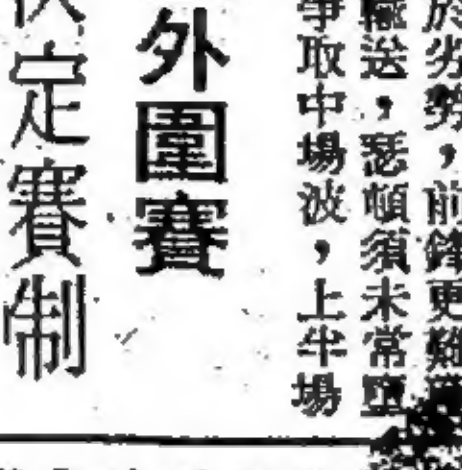 於劣勢，前鋒更難
送，瑟頓須未常墮
爭取中場波，上半場
外圍賽
定賽制